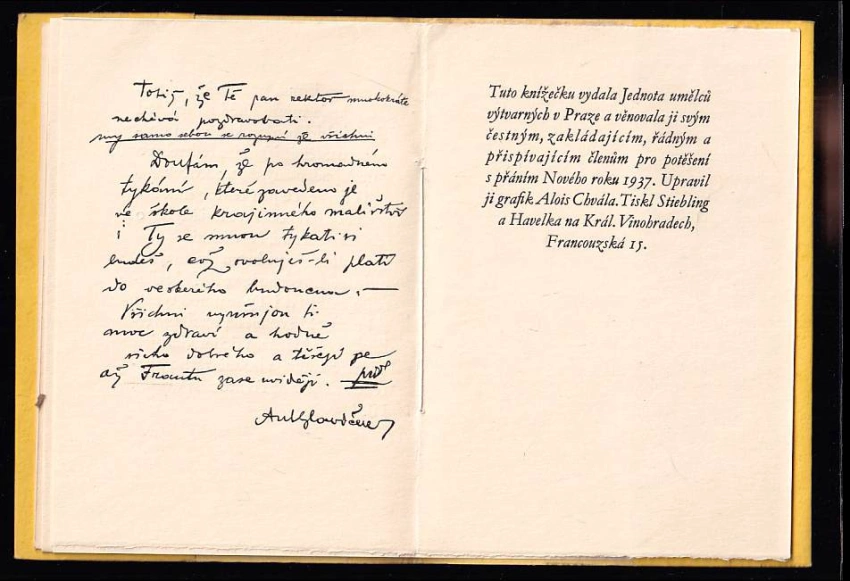 Totiž, že Tě pan rektor mnohokráte
nechává pozdravovati.
my samo sebou se rozumí že všichni
Doufám, že po hromadném
tykání, které zavedeno je
ve škole krajinného malířství
i Ty se mnou tykati si
budeš, což svoluješ-li platí
do veškerého budoucna. —
Všichni ti
moc zdraví a hodně
všeho dobrého a těšejí se
až Frantu zase uvidějí.
Tuto knížečku vydala Jednota umělců
výtvarných v Praze a věnovala ji svým
čestným, zakládajícím, řádným a
přispívajícím členům pro potěšení
s přáním Nového roku 1937. Upravil
ji grafik Alois Chvála. Tiskl Stiebling
a Havelka na Král. Vinohradech,
Francouzská 15.